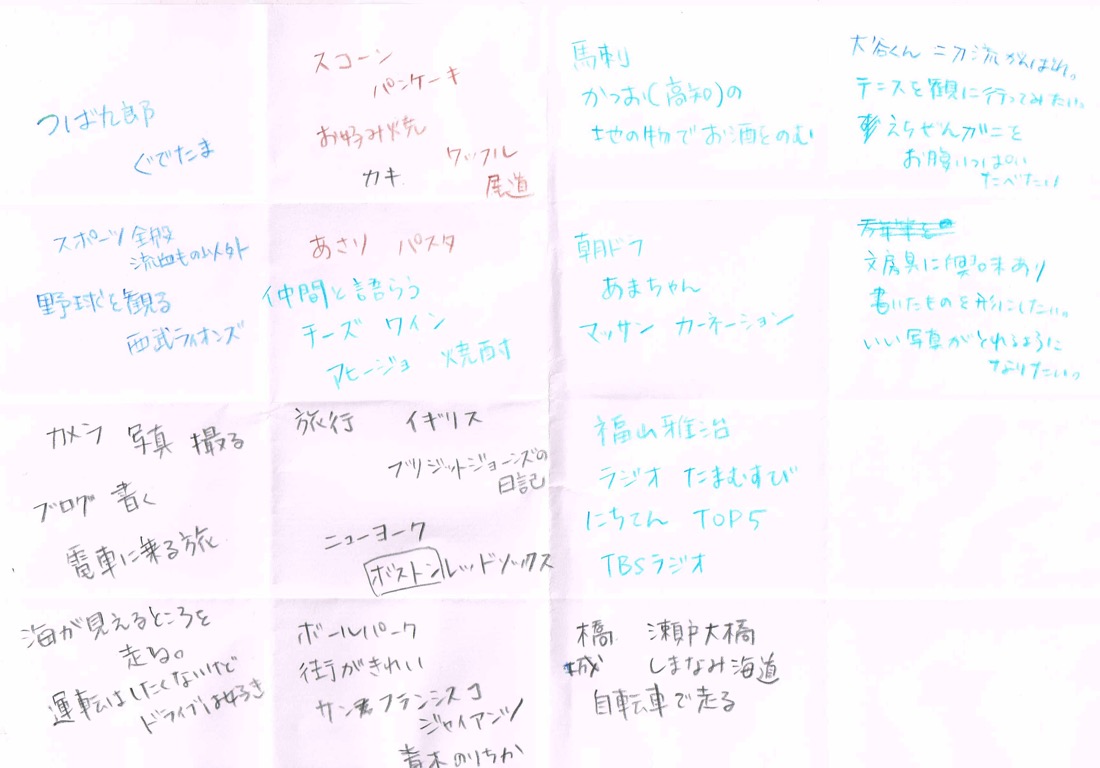 つば九郎
ぐでたま
スコーン
パンケーキ
お好み焼
ワッフル
カキ
尾道
馬刺
かつお(高知)の
地の物でお酒をのむ
大谷くん 二刀流がんばれ。
テニスを観に行ってみたい。
えちぜんガニを
お腹いっぱい
たべたい
スポーツ全般
流血もの以外
野球を観る
西武ライオンズ
あさり パスタ
仲間と語らう
チーズ ワイン
アヒージョ 焼酎
朝ドラ
あまちゃん
マッサン カーネーション
文房具に興味あり
書いたものを形にしたい。
いい写真がとれるように
なりたい。
カメラ 写真 撮る
ブログ 書く
電車に乗る旅
旅行 イギリス
ブリジットジョーンズの
日記
ニューヨーク
ボストン レッドソックス
福山雅治
ラジオ たまむすび
にちてん TOP5
TBSラジオ
海が見えるところを
走る。
運転はしたくないけど
ドライブは好き
ボールパーク
街がきれい
サンフランシスコ
ジャイアンツ
青木のりちか
橋 瀬戸大橋
城 しまなみ海道
自転車で走る